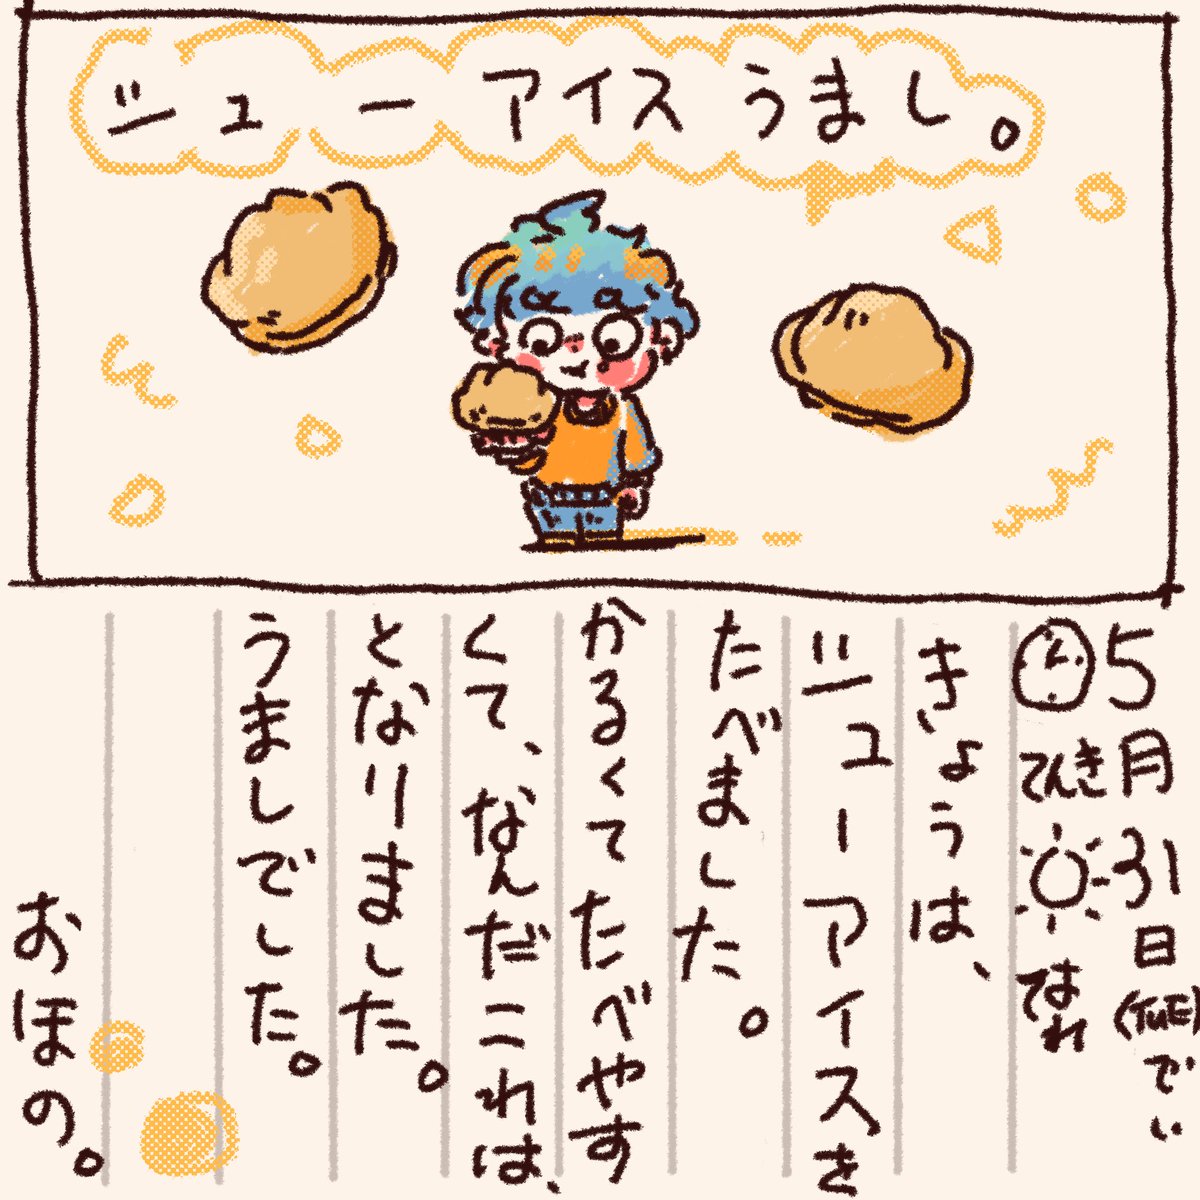 シューアイスうまし。
5月31日(TUE)でい
てんき はれ
きょうは、
シューアイスき
たべました。
かるくてたべやす
くて、なんだこれは、
となりました。
うましでした。
おほの。